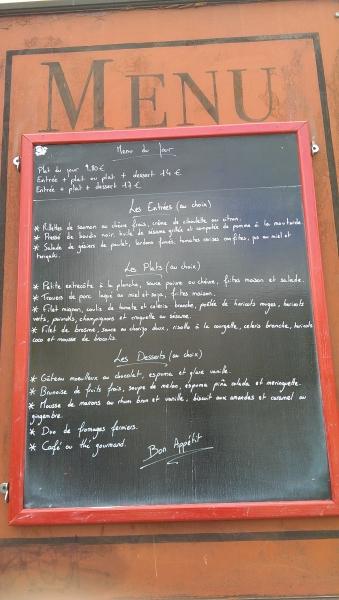 MENU
Menu du Jour
Plat du jour 9.80€
Entrée + plat ou plat + dessert 14€
Entrée + plat + dessert 17€
Les Entrées (au choix)
* Rillettes de saumon au chèvre frais, crème de ciboulette au citron.
* Pressé de boudin noir, huile de sésame grillé et compotée de pomme à la moutarde
* Salade de gésiers de poulet, lardons fumés, tomates cerises confites, jus au miel et
teriyaki.
Les Plats (au choix)
* Petite entrecôte à la planche, sauce poivre ou chèvre, frites maison et salade.
* Travers de porc laqué au miel et soja, frites maison.
* Filet mignon, coulis de tomate et céleris branche, poêlée de haricots rouges, haricots
verts, poivrons, champignons et croquette au sésame.
* Filet de brosme, sauce au chorizo doux, risotto à la courgette, céleris branche, haricots
coco et mousse de brocolis.
Les Desserts (au choix)
* Gâteau moelleux au chocolat, espuma et glace vanille.
* Brunoise de fruits frais, soupe de melon, espuma piña colada et meringuette.
* Mousse de marrons au rhum brun et vanille, biscuit aux amandes et caramel au
gingembre.
* Duo de fromages fermiers.
* Café ou thé gourmand.
Bon Appétit